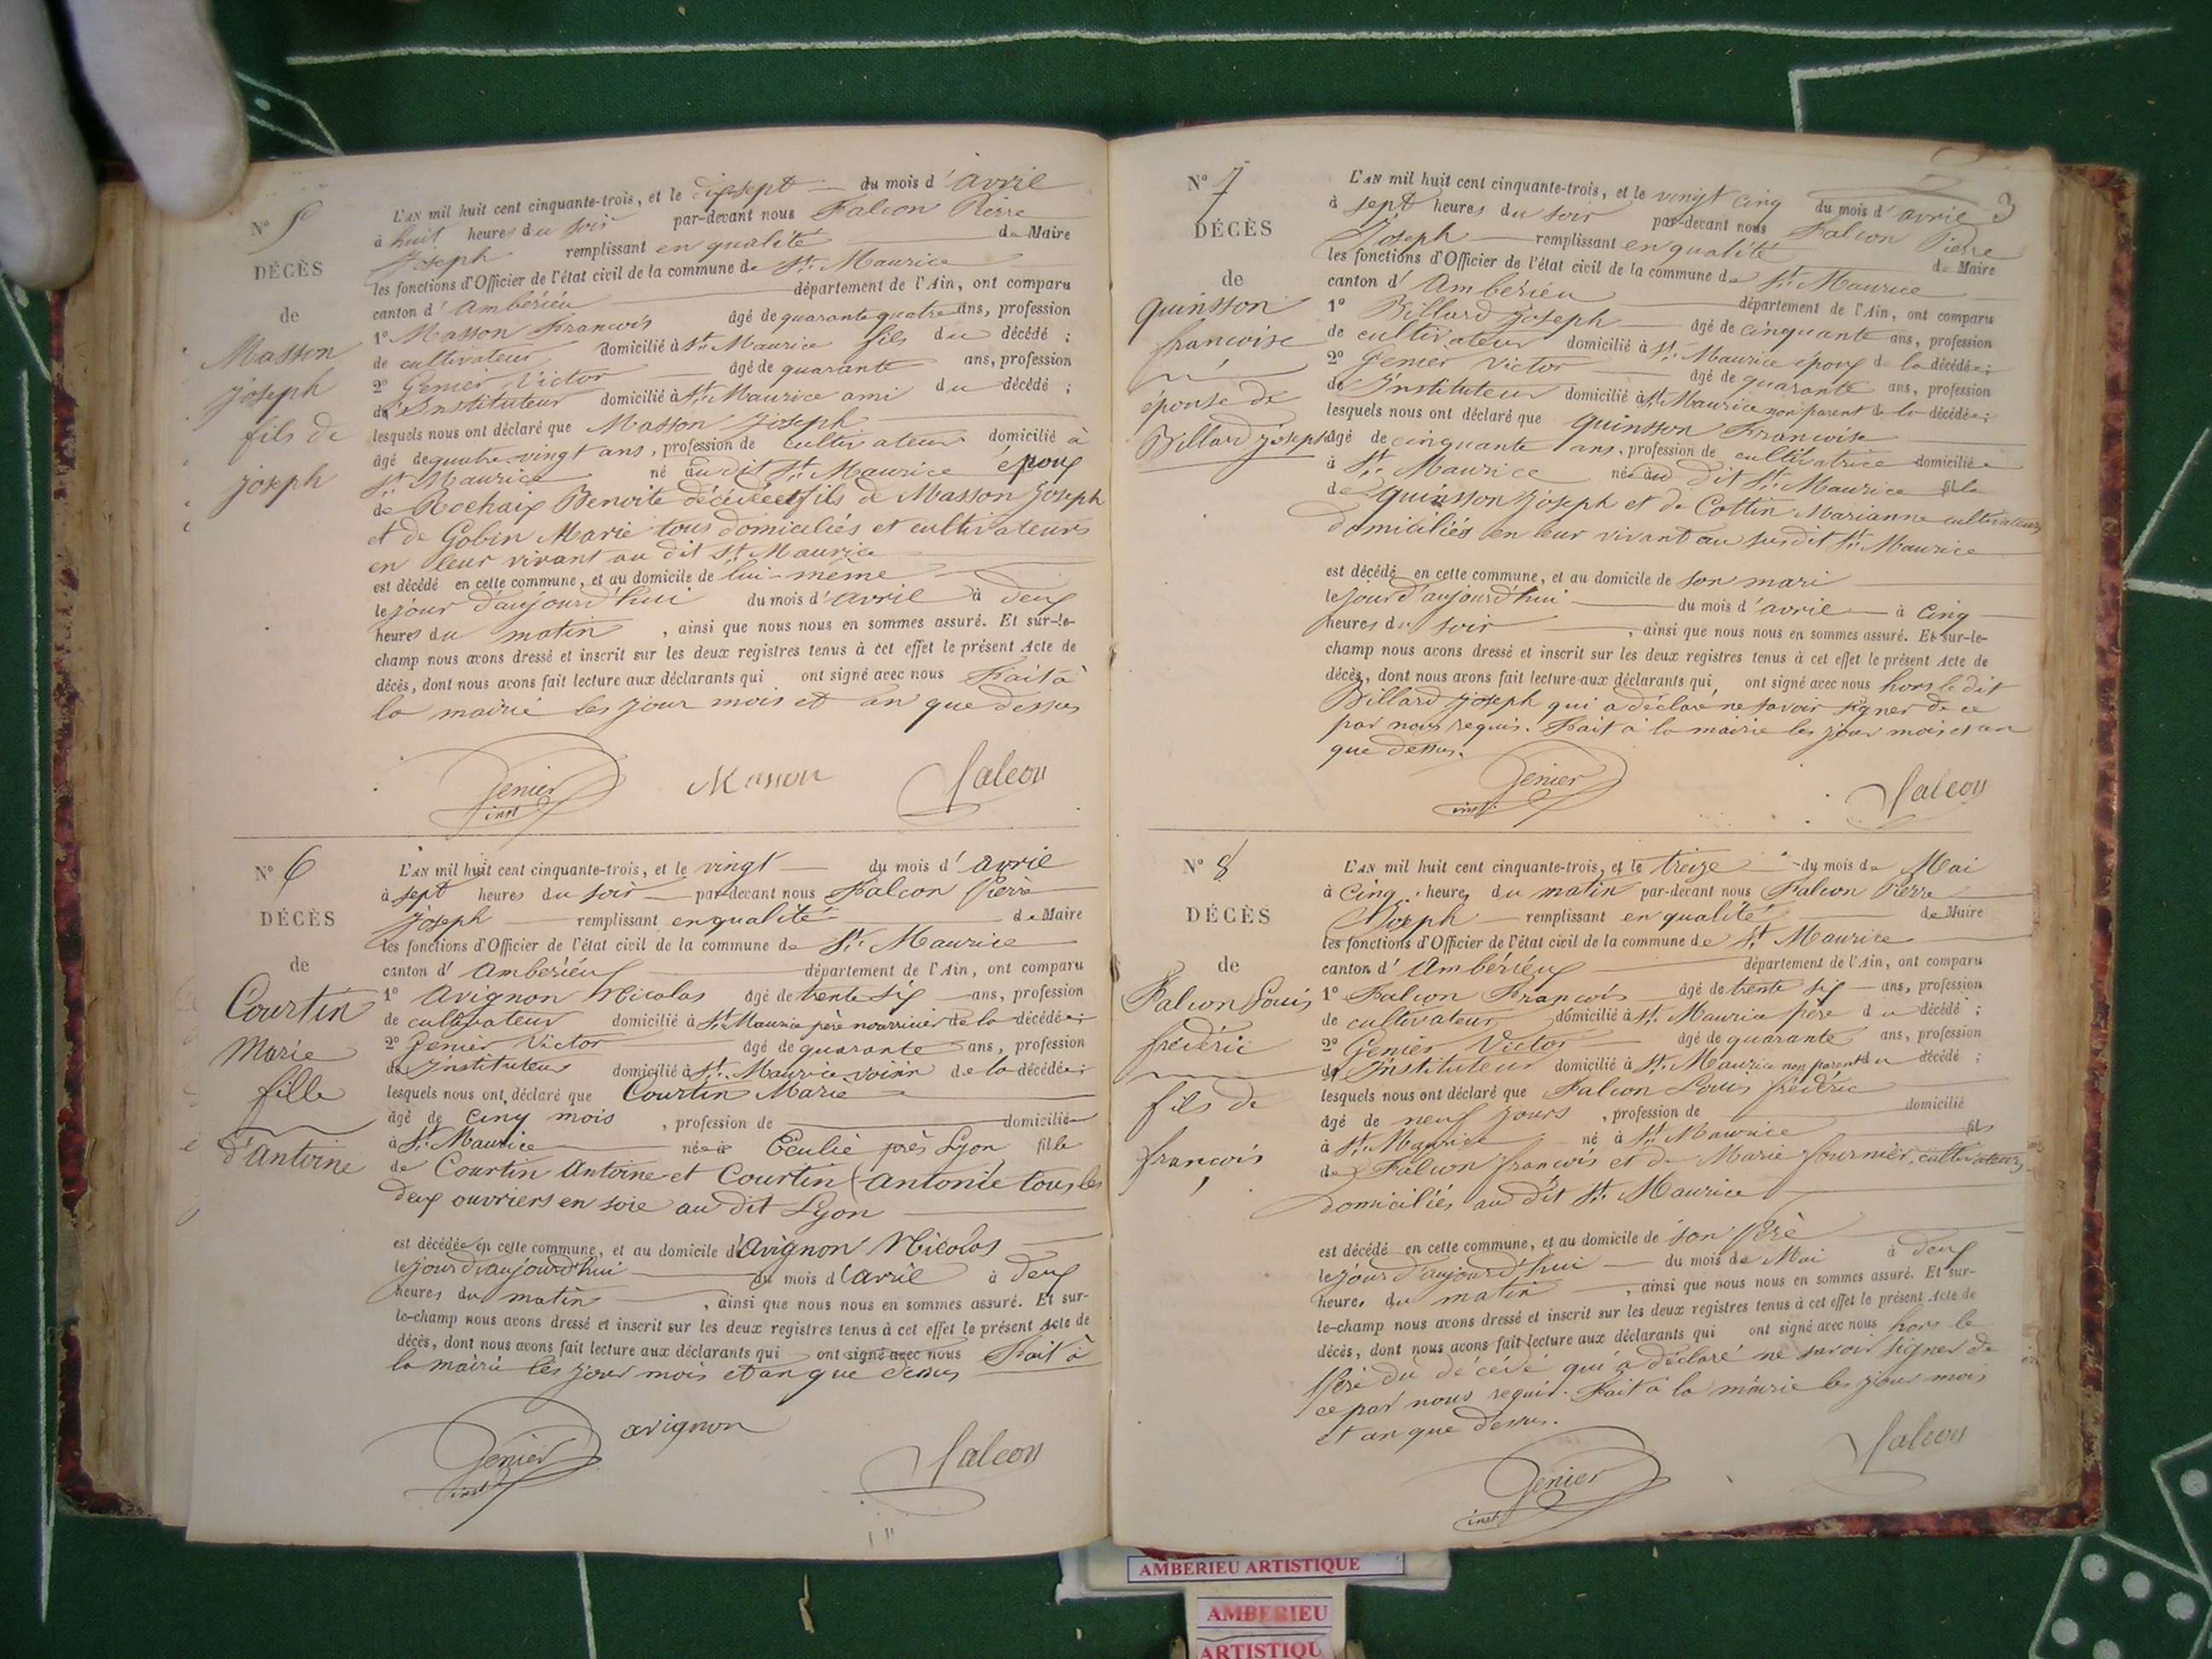 N° 5
DÉCÈS
de
Masson
joseph
fils de
joseph
L'AN mil huit cent cinquante-trois, et le dixsept du mois d'avril
à huit heures du soir par-devant nous Falcon Pierre
Joseph remplissant en qualité de Maire
les fonctions d'Officier de l'état civil de la commune de St. Maurice
canton d'Ambérieu département de l'Ain, ont comparu
1° Masson Francois âgé de quarante quatre ans, profession
de cultivateur domicilié à St. Maurice fils du décédé ;
2° Genier Victor âgé de quarante ans, profession
d'Instituteur domicilié à St. Maurice ami du décédé ;
lesquels nous ont déclaré que Masson Joseph
âgé de quatre-vingt ans, profession de cultivateur domicilié à
St Maurice né au dit St. Maurice époux
de Rochaix Benoite décédée et fils de Masson Joseph
et de Gobin Marie tous domiciliés et cultivateurs
en leur vivant au dit St. Maurice
est décédé en cette commune, et au domicile de lui-même
le jour d'aujourd'hui du mois d'avril à deux
heures du matin, ainsi que nous nous en sommes assuré. Et sur-le-
champ nous avons dressé et inscrit sur les deux registres tenus à cet effet le présent Acte de
décès, dont nous avons fait lecture aux déclarants qui ont signé avec nous Fait à
la mairie les jour mois et an que dessus
Genier
inst
Masson
Falcon
N° 6
DÉCÈS
de
Courtin
Marie
fille
d'Antoine
L'AN mil huit cent cinquante-trois, et le vingt du mois d'avril
à sept heures du soir par-devant nous Falcon Pierre
Joseph remplissant en qualité de Maire
les fonctions d'Officier de l'état civil de la commune de St. Maurice
canton d'Ambérieux département de l'Ain, ont comparu
1° Avignon Nicolas âgé de trente six ans, profession
de cultivateur domicilié à St. Maurice père nourricier de la décédée ;
2° Genier Victor âgé de quarante ans, profession
d'Instituteur domicilié à St. Maurice voisin de la décédée ;
lesquels nous ont déclaré que Courtin Marie
âgé de cinq mois, profession de domiciliée
à St. Maurice née à Eculie près Lyon fille
de Courtin Antoine et Courtin Antonie tous les
deux ouvriers en soie au dit Lyon
est décédée en cette commune, et au domicile d'Avignon Nicolas
le jour d'aujourd'hui du mois d'avril à deux
heures du matin, ainsi que nous nous en sommes assuré. Et sur-
le-champ nous avons dressé et inscrit sur les deux registres tenus à cet effet le présent Acte de
décès, dont nous avons fait lecture aux déclarants qui ont signé avec nous Fait à
la mairie les jour mois et an que dessus
Genier
inst
avignon
Falcon
3
N° 7
DÉCÈS
de
quinsson
francoise
épouse de
Billard joseph
L'AN mil huit cent cinquante-trois, et le vingt cinq du mois d'avril
à sept heures du soir par-devant nous Falcon Pierre
Joseph remplissant en qualité de Maire
les fonctions d'Officier de l'état civil de la commune de St. Maurice
canton d'Ambérieu département de l'Ain, ont comparu
1° Billard joseph âgé de cinquante ans, profession
de cultivateur domicilié à St. Maurice époux de la décédée ;
2° Genier Victor âgé de quarante ans, profession
de Instituteur domicilié à St. Maurice non parent de la décédée ;
lesquels nous ont déclaré que quinsson Francoise
âgé de cinquante ans, profession de cultivatrice domiciliée
à St. Maurice née au dit St. Maurice fille
de quinsson Joseph et de Cottin Marianne cultivateurs
domiciliés en leur vivant au susdit St. Maurice
est décédé en cette commune, et au domicile de son mari
le jour d'aujourd'hui du mois d'avril à cinq
heures du soir, ainsi que nous nous en sommes assuré. Et sur-le-
champ nous avons dressé et inscrit sur les deux registres tenus à cet effet le présent Acte de
décès, dont nous avons fait lecture aux déclarants qui ont signé avec nous hors le dit
Billard joseph qui a déclaré ne savoir signer de ce
par nous requis. Fait à la mairie les jour mois et an
que dessus.
Genier
inst.
Falcon
N° 8
DÉCÈS
de
Falcon Louis
frédéric
fils de
francois
L'AN mil huit cent cinquante-trois, et le treize du mois de Mai
à cinq heures du matin par-devant nous Falcon Pierre
Joseph remplissant en qualité de Maire
les fonctions d'Officier de l'état civil de la commune de St. Maurice
canton d'Ambérieux département de l'Ain, ont comparu
1° Falcon Francois âgé de trente six ans, profession
de cultivateur domicilié à St. Maurice père du décédé ;
2° Genier Victor âgé de quarante ans, profession
d'Instituteur domicilié à St. Maurice non parent du décédé ;
lesquels nous ont déclaré que Falcon Louis frédéric
âgé de neuf jours, profession de domicilié
à St. Maurice né à St. Maurice fils
de Falcon francois et de Marie fournier cultivateurs
domiciliés au dit St. Maurice
est décédé en cette commune, et au domicile de son père
le jour d'aujourd'hui du mois de Mai à deux
heures du matin, ainsi que nous nous en sommes assuré. Et sur-
le-champ nous avons dressé et inscrit sur les deux registres tenus à cet effet le présent Acte de
décès, dont nous avons fait lecture aux déclarants qui ont signé avec nous hors le
père du décédé qui a déclaré ne savoir signer de
ce par nous requis. Fait à la mairie les jour mois
et an que dessus.
Genier
inst
Falcon
AMBERIEU ARTISTIQUE
AMBERIEU
ARTISTIQU